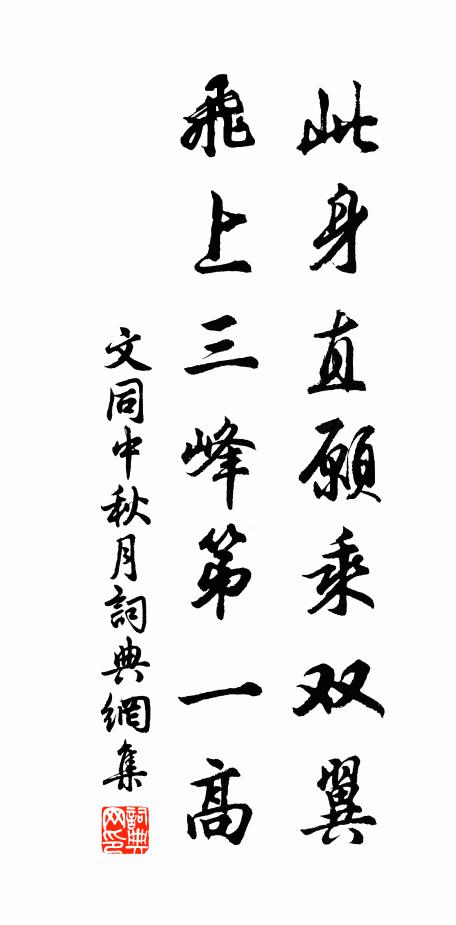 此身直愿乘双翼
飛上三峰第一高
文同中秋月詞典網集
詞典网印